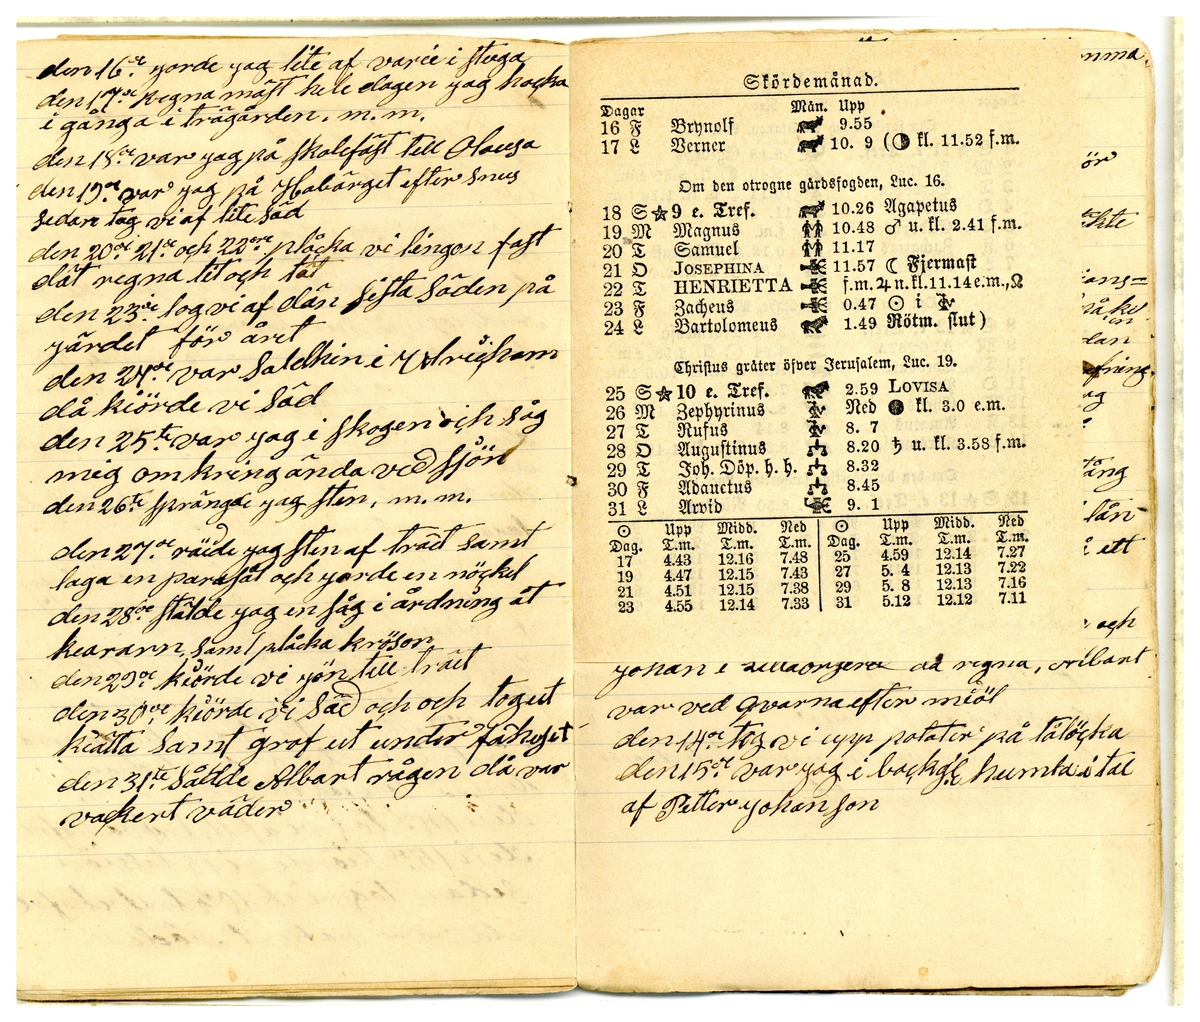 den 16de gorde jag lite af varie i stuga
den 17de Regna mäst hele dagen jag hacka
i gånga i trägården. m. m.
den 18de var jag på skalefäst till Olauga
den 19de var jag på Habärget efter Snus
sedan tog vi af lite Säd
den 20de 21de och 22dre plåcka vi lingon fast
dät regna tet och tät
den 23ie tog vi af dän sista Säden på
gärdet för året
den 24de var Saldkin i
då kiörde vi Säd
den 25te var jag i skogen och såg
mig omkring ända ved sjön
den 26te sprängde jag sten, m. m.
den 27de räide jag sten af träit samt
laga en parasåt och gorde en nöckel
den 28de stälde jag en såg i årdning åt
kararn, samt plåcka kröson
den 29de kiörde vi jön till träit
den 30de kiörde vi Säd och och tog ut
kiätta samt grof ut under fähuset
den 31te Sålde Albart rågen då var
vackert väder
Skördemånad.
Dagar Mån. Upp
16 F Brynolf 9.55
17 L Verner 10. 9 ( kl. 11.52 f.m.
Om den otrogne gårdsfogden, Luc. 16.
18 S 9 e. Tref. 10.26 Agapetus
19 M Magnus 10.48 ♂ u. kl. 2.41 f.m.
20 T Samuel 11.17
21 O JOSEPHINA 11.57 ☾ Fjermast
22 T HENRIETTA f.m. ♃ n. kl. 11.14 e.m., ☊
23 F Zacheus 0.47 ☉ i
24 L Bartolomeus 1.49 Rötm. slut)
Christus gråter öfver Jerusalem, Luc. 19.
25 S 10 e. Tref. 2.59 LOVISA
26 M Zephyrinus Ned ● kl. 3.0 e.m.
27 T Rufus 8. 7
28 O Augustinus 8.20 ♄ u. kl. 3.58 f.m.
29 T Joh. Döp. h. h. 8.32
30 F Adauctus 8.45
31 L Arvid 9. 1
☉ Upp Midd. Ned ☉ Upp Midd. Ned
Dag. T.m. T.m. T.m. Dag. T.m. T.m. T.m.
17 4.43 12.16 7.48 25 4.59 12.14 7.27
19 4.47 12.15 7.43 27 5. 4 12.13 7.22
21 4.51 12.15 7.38 29 5. 8 12.13 7.16
23 4.55 12.14 7.33 31 5.12 12.12 7.11
och
johan i då regna, Albart
var ved qvarna efter miöl
den 14de tog vi upp potater på tålöcka
den 15de var jag i humla i tal
af Petter johanson